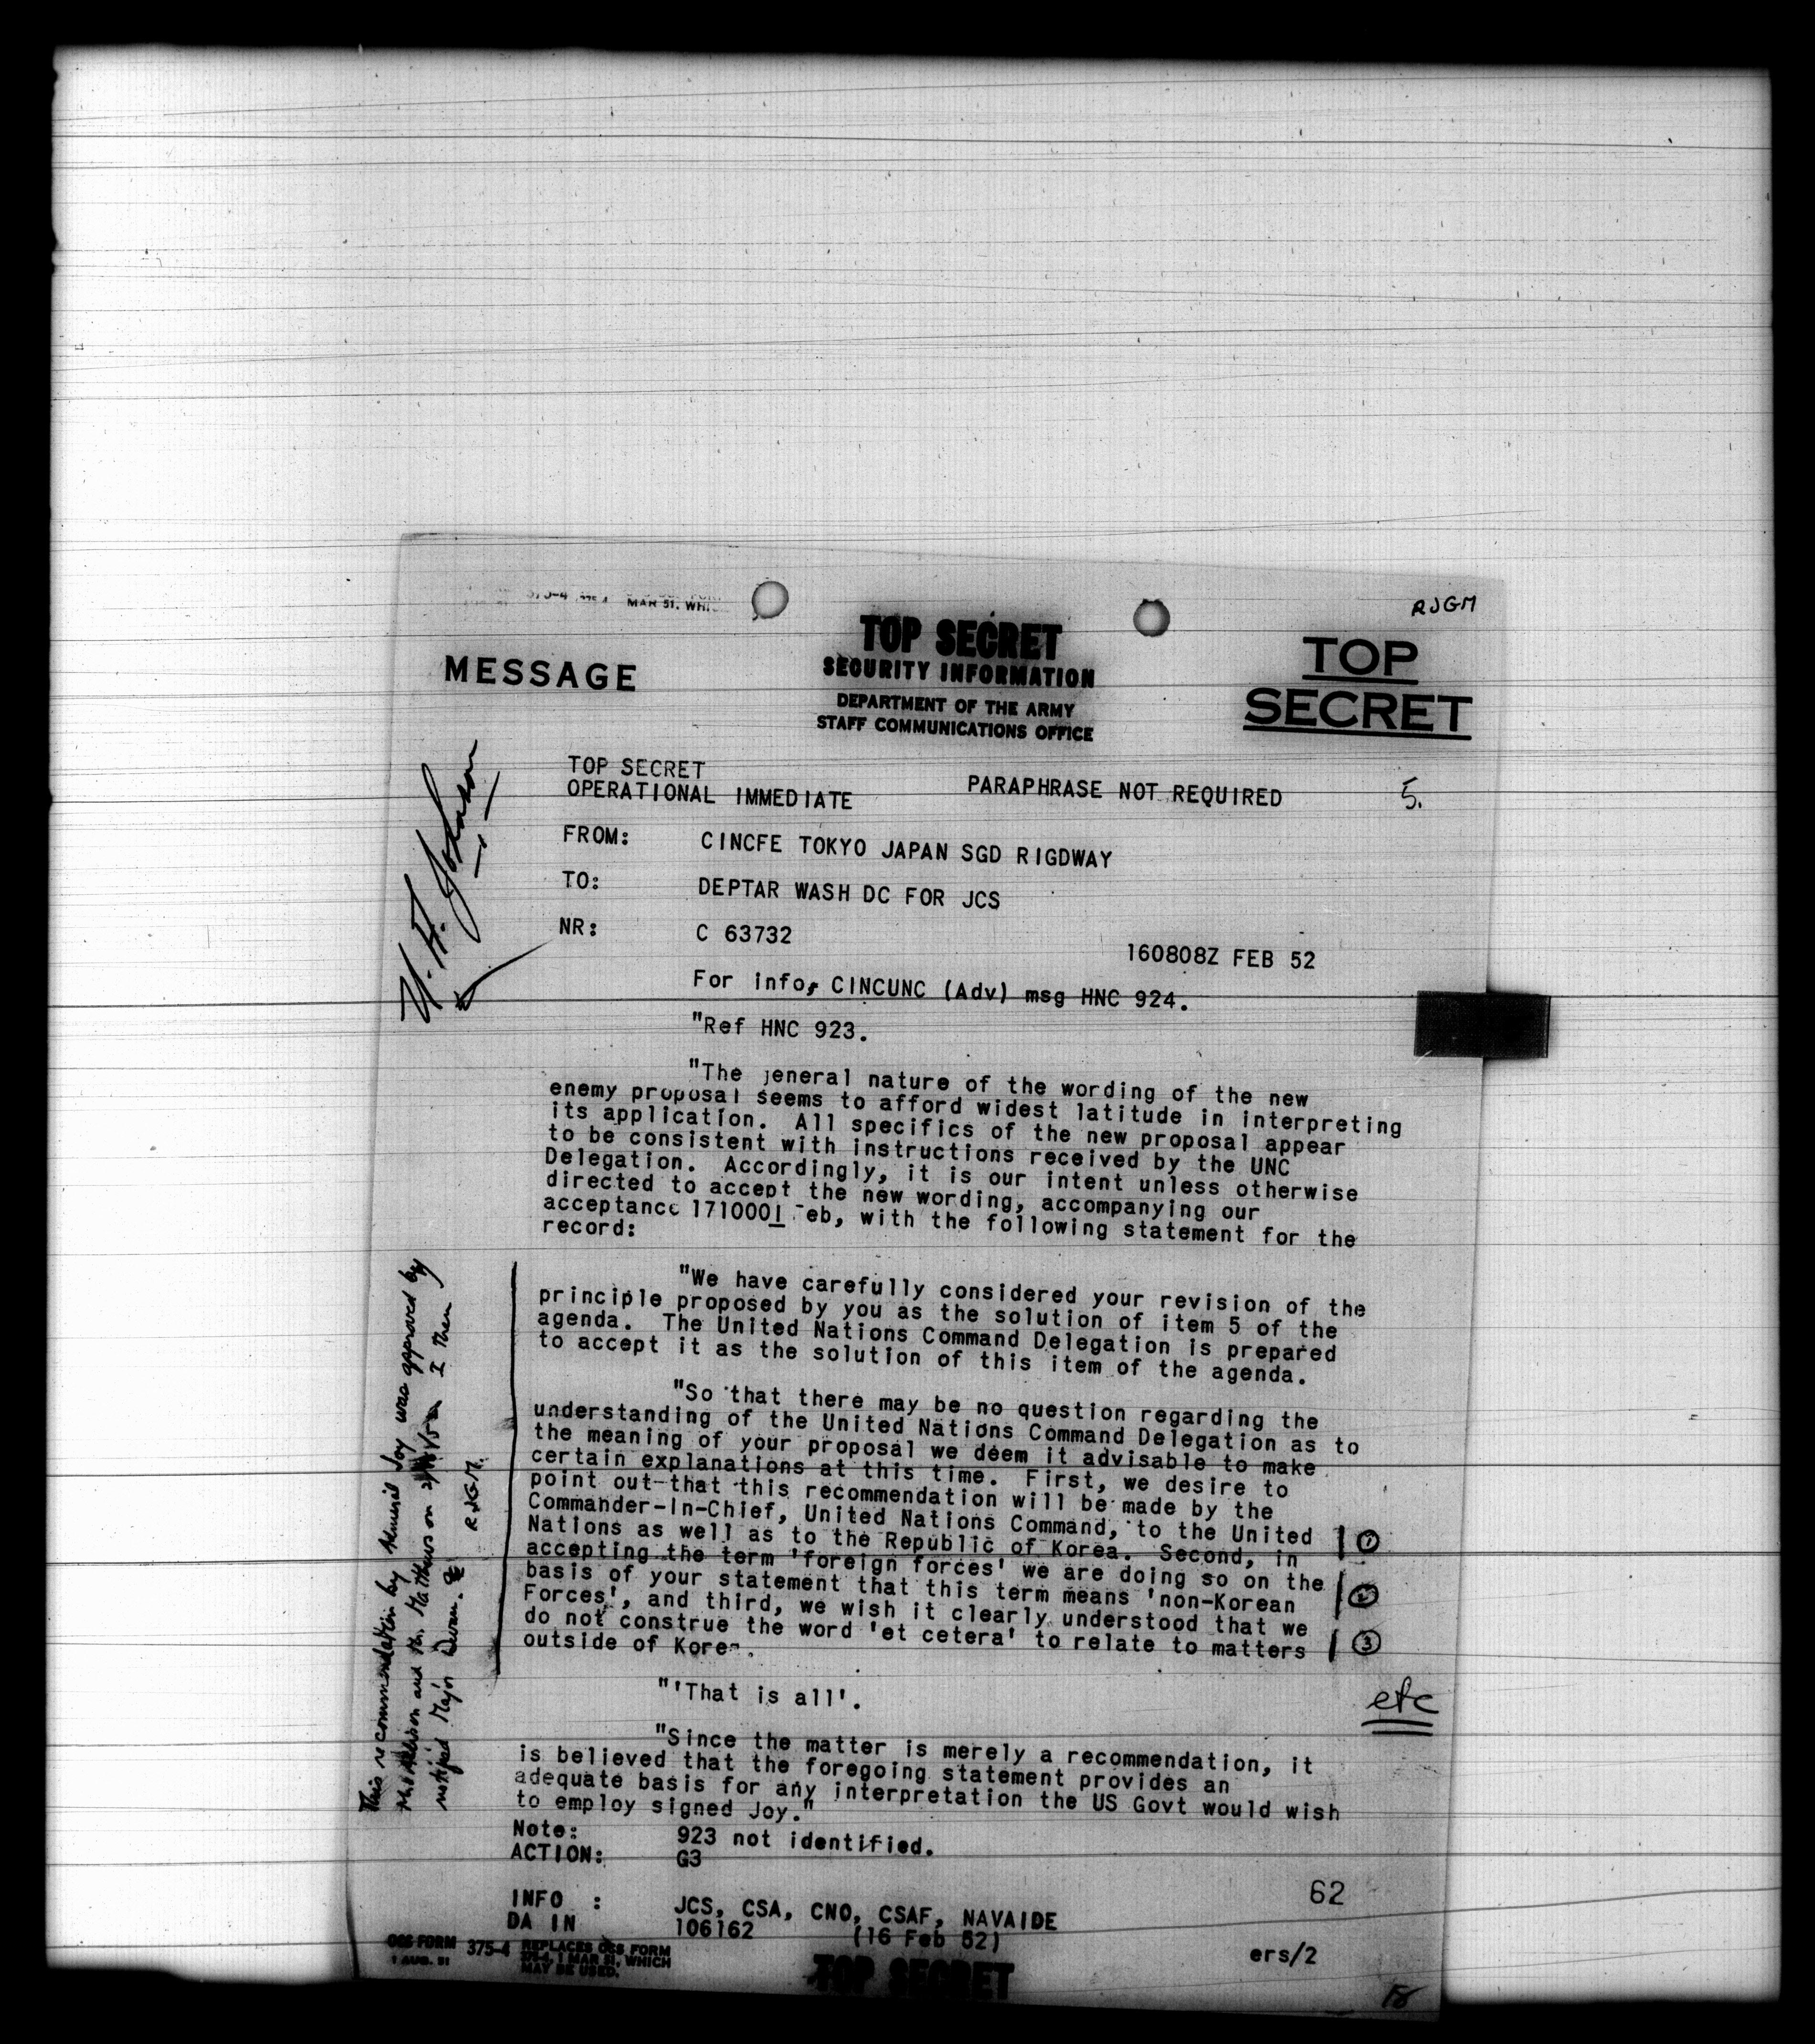 RJGM
MESSAGE
TOP SECRET
SECURITY INFORMATION
DEPARTMENT OF THE ARMY
STAFF COMMUNICATIONS OFFICE
TOP
SECRET
TOP SECRET
OPERATIONAL IMMEDIATE
PARAPHRASE NOT REQUIRED
5.
FROM: CINCFE TOKYO JAPAN SGD RIGDWAY
TO: DEPTAR WASH DC FOR JCS
NR: C 63732
160808Z FEB 52
For info, CINCUNC (Adv) msg HNC 924.
"Ref HNC 923.
"The general nature of the wording of the new
enemy proposal seems to afford widest latitude in interpreting
its application. All specifics of the new proposal appear
to be consistent with instructions received by the UNC
Delegation. Accordingly, it is our intent unless otherwise
directed to accept the new wording, accompanying our
acceptance 171000I eb, with the following statement for the
record:
"We have carefully considered your revision of the
principle proposed by you as the solution of item 5 of the
agenda. The United Nations Command Delegation is prepared
to accept it as the solution of this item of the agenda.
"So that there may be no question regarding the
understanding of the United Nations Command Delegation as to
the meaning of your proposal we deem it advisable to make
certain explanations at this time. First, we desire to
point out that this recommendation will be made by the
Commander-In-Chief, United Nations Command, to the United
Nations as well as to the Republic of Korea. Second, in
accepting the term 'foreign forces' we are doing so on the
basis of your statement that this term means 'non-Korean
Forces', and third, we wish it clearly understood that we
do not construe the word 'et cetera' to relate to matters
outside of Korea.
1
2
3
"'That is all'.
etc
"Since the matter is merely a recommendation, it
is believed that the foregoing statement provides an
adequate basis for any interpretation the US Govt would wish
to employ signed Joy."
Note: 923 not identified.
ACTION: G3
INFO : JCS, CSA, CNO, CSAF, NAVAIDE
DA IN 106162 (16 Feb 52)
62
ers/2
OCS FORM 375-4 REPLACES OCS FORM
1 AUG. 51 375-4, 1 MAR 51, WHICH
MAY BE USED.
TOP SECRET
U. A. Johnson
This recommendation by Admiral Joy was approved by
and Mr. Matthews on I then
notified Major
RJGM.
375-4
MAR 51, WHI